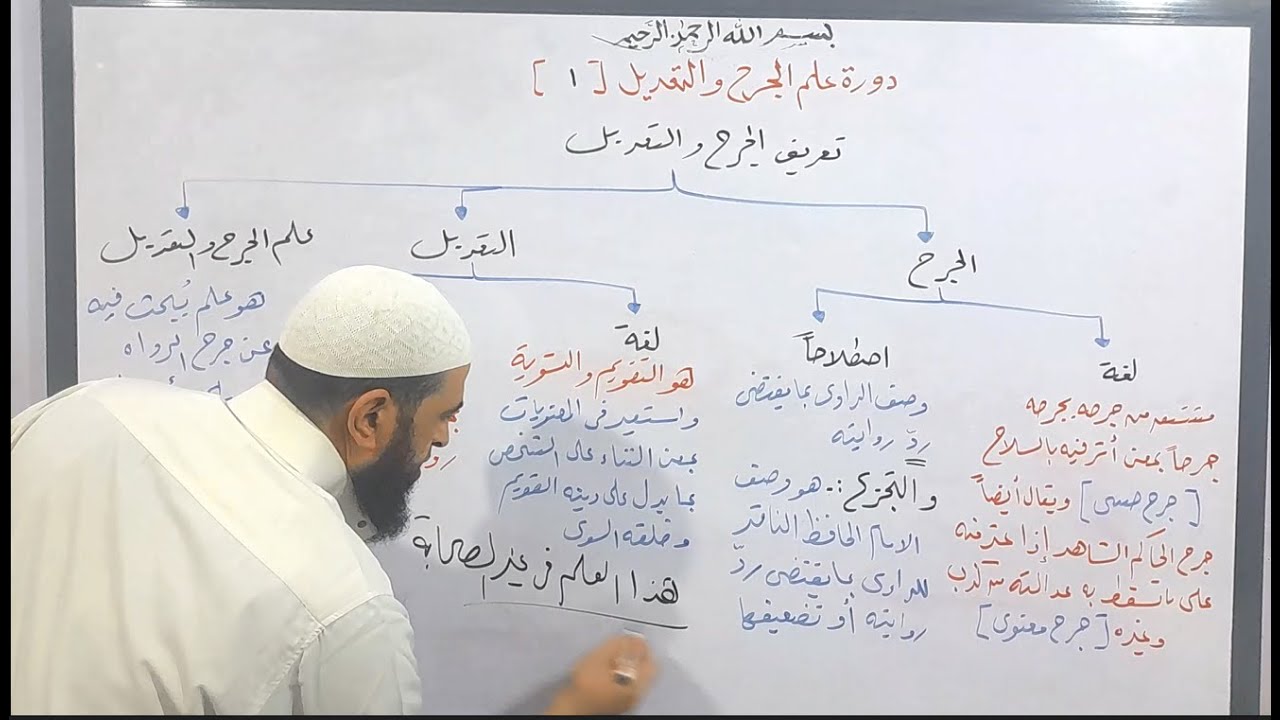 بسم الله الرحمن الرحيم
دورة علم الجرح والتعديل [ ١ ]
تعريف الجرح والتعديل
الجرح
لغة
من جرحه يجرحه
جرحاً بمعن أثر فيه بالسلاح
[جرح حسى] ويقال أيضاً
جرح الحاكم الشاهد إذا عثر فيه
على ما تسقط به عدالته كذب
وغيره [جرح معنوى]
اصطلاحاً
وصف الراوى بما يقتضى
ردّ روايته
والتجريح :- هو وصف
الامام الحافظ الناقد
للراوى بما يقتضى ردّ
روايته أو تضعيفها
التعديل
لغة
هو التقويم والتسوية
واستعير فى المعنويات
بمعن الثناء على الشخص
بما يدل على دينه القويم
وخلقه السوى
هذا العلم فى غير الصحابة
علم الجرح والتعديل
هو علم يُبحث فيه
عن جرح الرواه